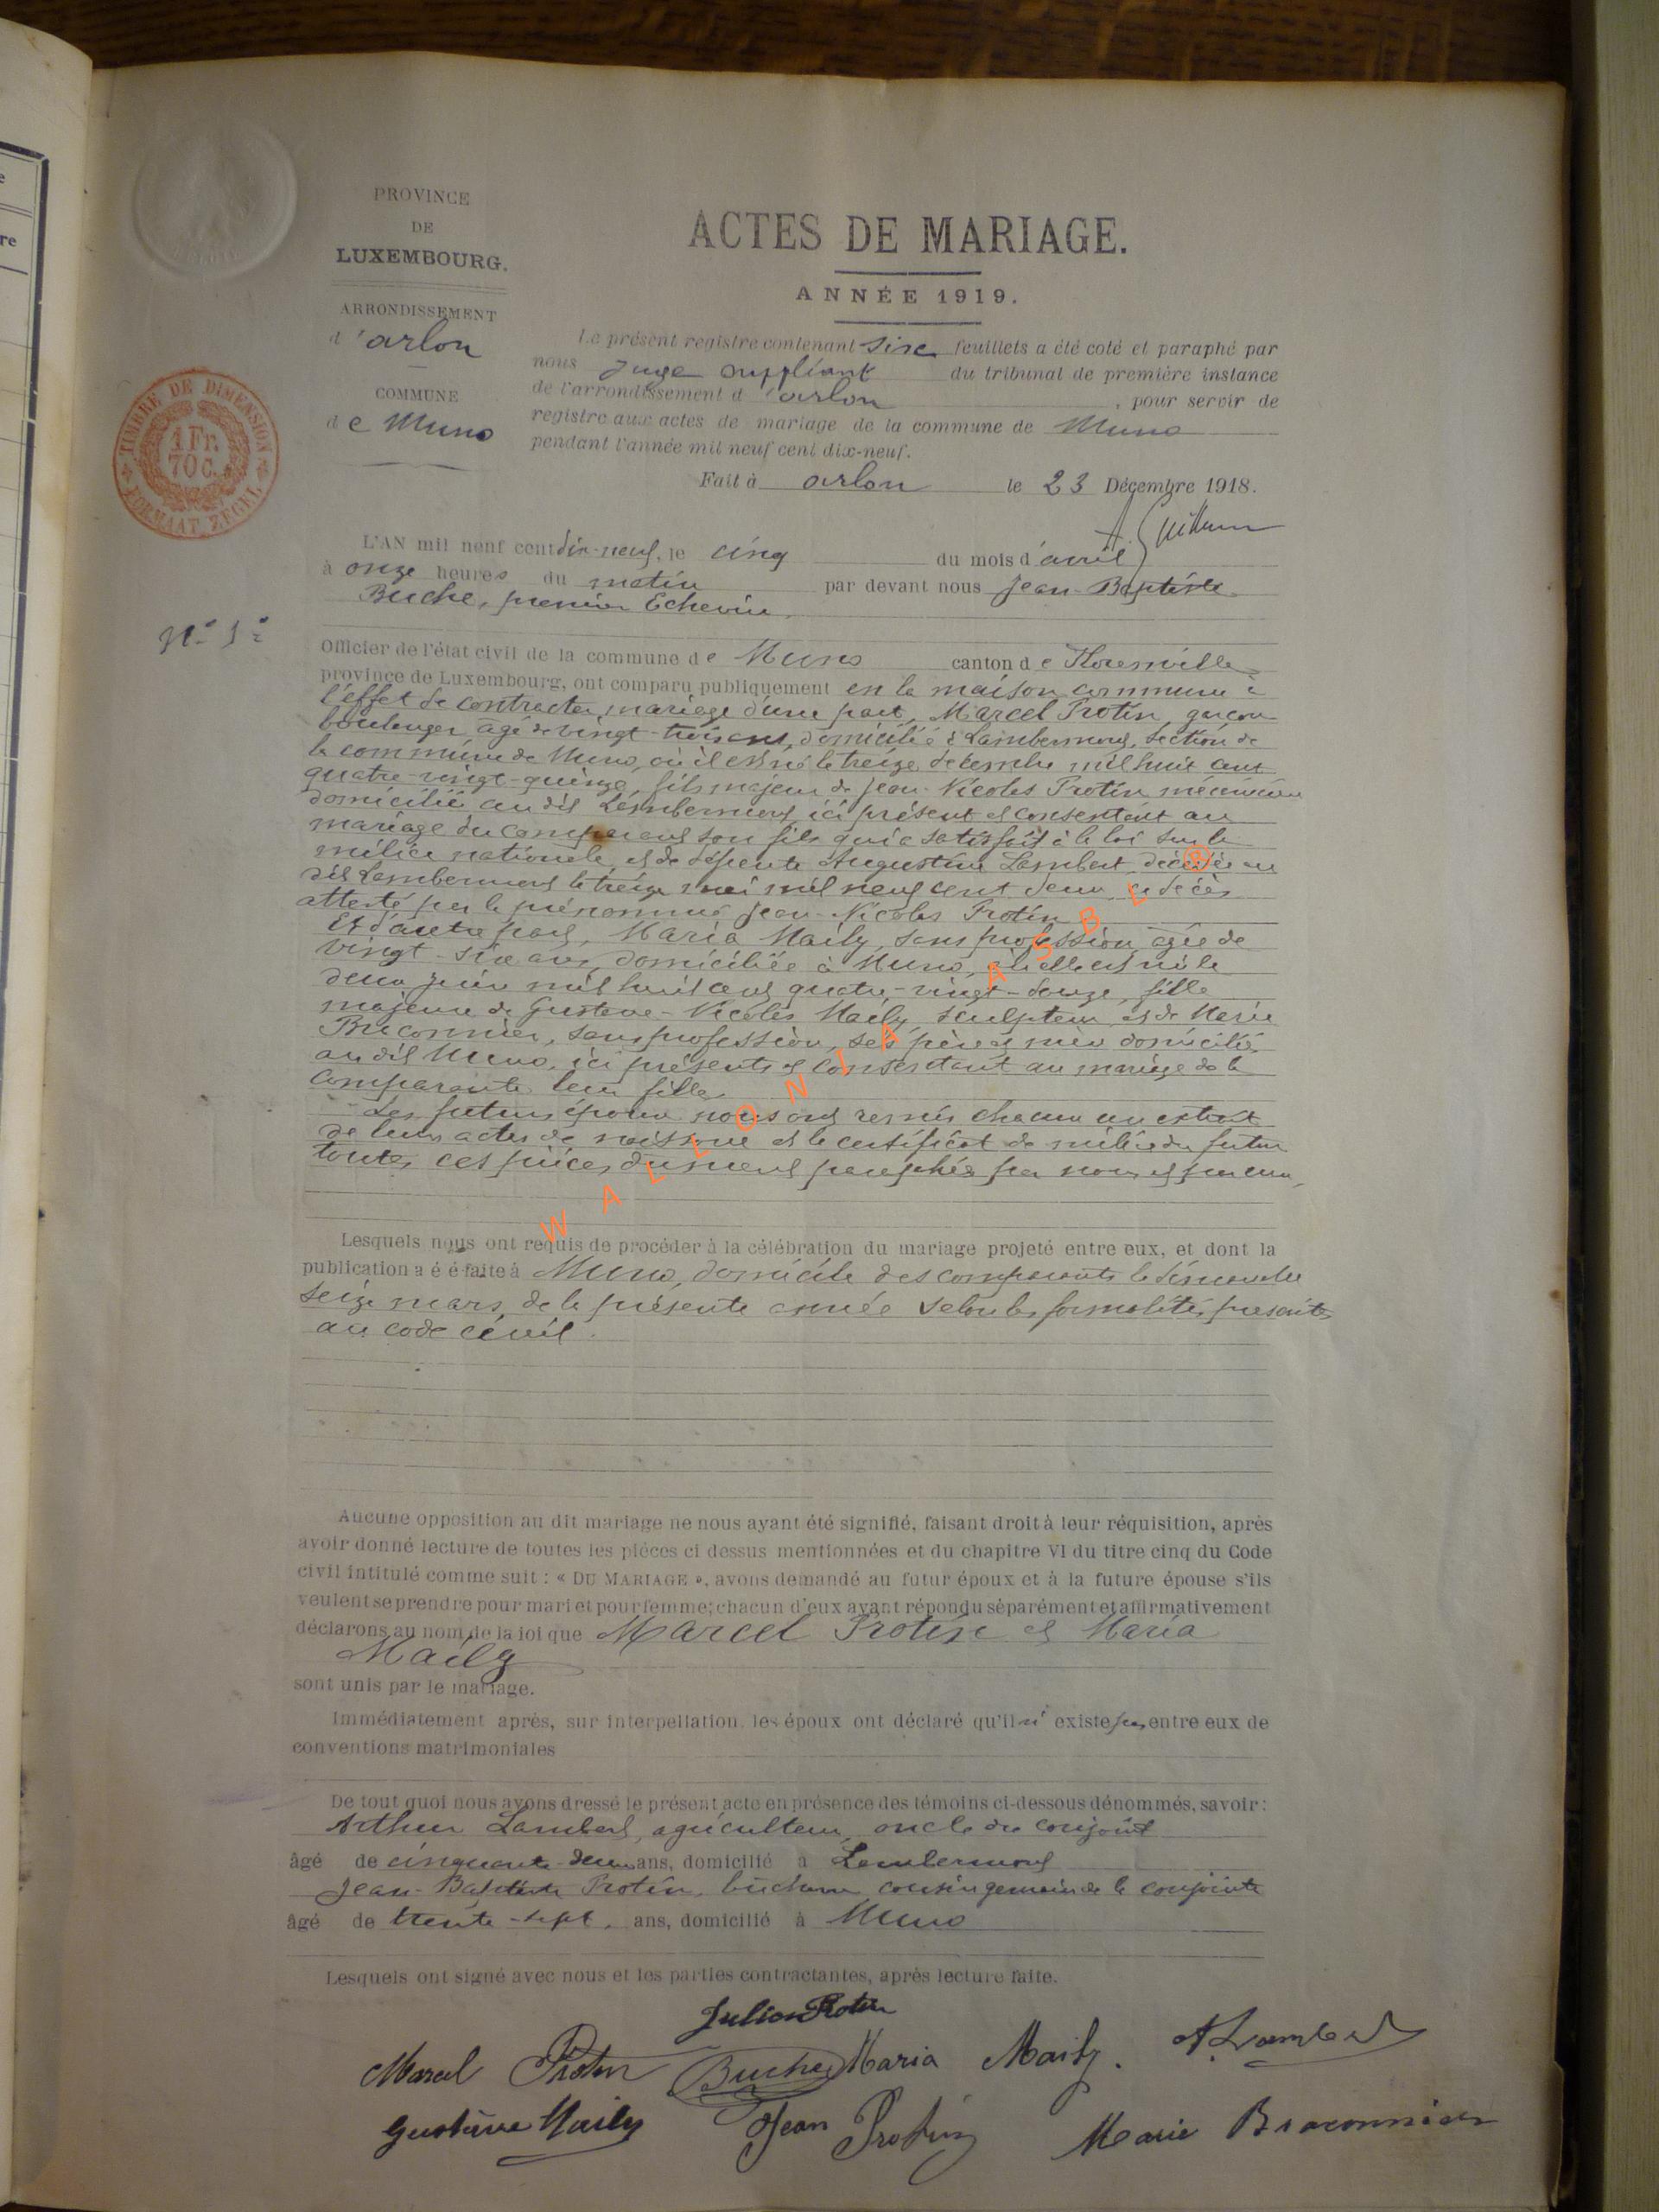 PROVINCE
DE
LUXEMBOURG.
ARRONDISSEMENT
d'arlon
COMMUNE
de Muno
TIMBRE DE DIMENSION
1 Fr.
70 C.
FORMAAT ZEGEL
ACTES DE MARIAGE.
ANNÉE 1919.
Le présent registre contenant six feuillets a été coté et paraphé par
nous Juge suppléant du tribunal de première instance
de l'arrondissement d'arlon, pour servir de
registre aux actes de mariage de la commune de Muno
pendant l'année mil neuf cent dix-neuf.
Fait à arlon le 23 Décembre 1918.
L'AN mil neuf cent dix-neuf, le cinq du mois d'avril
à onze heures du matin par devant nous Jean-Baptiste
Buche, premier Echevin,
N° 1
Officier de l'état civil de la commune de Muno canton de Florenville
province de Luxembourg, ont comparu publiquement en la maison commune à
l'effet de contracter mariage d'une part, Marcel Protin, garçon
boulanger âgé de vingt-trois ans, domicilié à Lambermont, section de
la commune de Muno, où il est né le treize décembre mil huit cent
quatre-vingt-quinze, fils majeur de Jean-Nicolas Protin mécanicien
domicilié au dit Lambermont, ici présent et consentant au
mariage du comparant son fils qui a satisfait à la loi sur la
milice nationale, et de défunte Augustine Lambert, décédée au
dit Lambermont le treize mai mil neuf cent deux, ce décès
attesté par le prénommé Jean-Nicolas Protin
Et d'autre part, Maria Maily, sans profession, âgée de
vingt-six ans, domiciliée à Muno, où elle est née le
deux juin mil huit cent quatre-vingt-douze, fille
majeure de Gustave-Nicolas Maily, sculpteur et de Marie
Braconnier, sans profession, ses père et mère domiciliés
au dit Muno, ici présents et consentant au mariage de la
comparante leur fille.
Les futurs époux nous ont remis chacun un extrait
de leurs actes de naissance et le certificat de milice du futur
toutes ces pièces dument paraphées par nous et par eux,
WALLONIA ASBL ®
Lesquels nous ont requis de procéder à la célébration du mariage projeté entre eux, et dont la
publication a é é faite à Muno, domicile des comparants le dimanche
seize mars de la présente année selon les formalités prescrites
au code civil.
Aucune opposition au dit mariage ne nous ayant été signifié, faisant droit à leur réquisition, après
avoir donné lecture de toutes les pièces ci dessus mentionnées et du chapitre VI du titre cinq du Code
civil intitulé comme suit : « DU MARIAGE », avons demandé au futur époux et à la future épouse s'ils
veulent se prendre pour mari et pour femme; chacun d'eux ayant répondu séparément et affirmativement
déclarons au nom de la loi que Marcel Protin et Maria
Maily
sont unis par le mariage.
Immédiatement après, sur interpellation, les époux ont déclaré qu'il n'existe pas entre eux de
conventions matrimoniales
De tout quoi nous avons dressé le présent acte en présence des témoins ci-dessous dénommés, savoir :
Arthur Lambert, agriculteur, oncle du conjoint
âgé de cinquante-deux ans, domicilié à Lambermont
Jean-Baptiste Protin, bûcheron cousin germain de la conjointe
âgé de trente-sept, ans, domicilié à Muno
Lesquels ont signé avec nous et les parties contractantes, après lecture faite.
Julien Protin
Marcel Protin Buche Maria Maily. A. Lambert
Gustave Maily Jean Protin Marie Braconnier